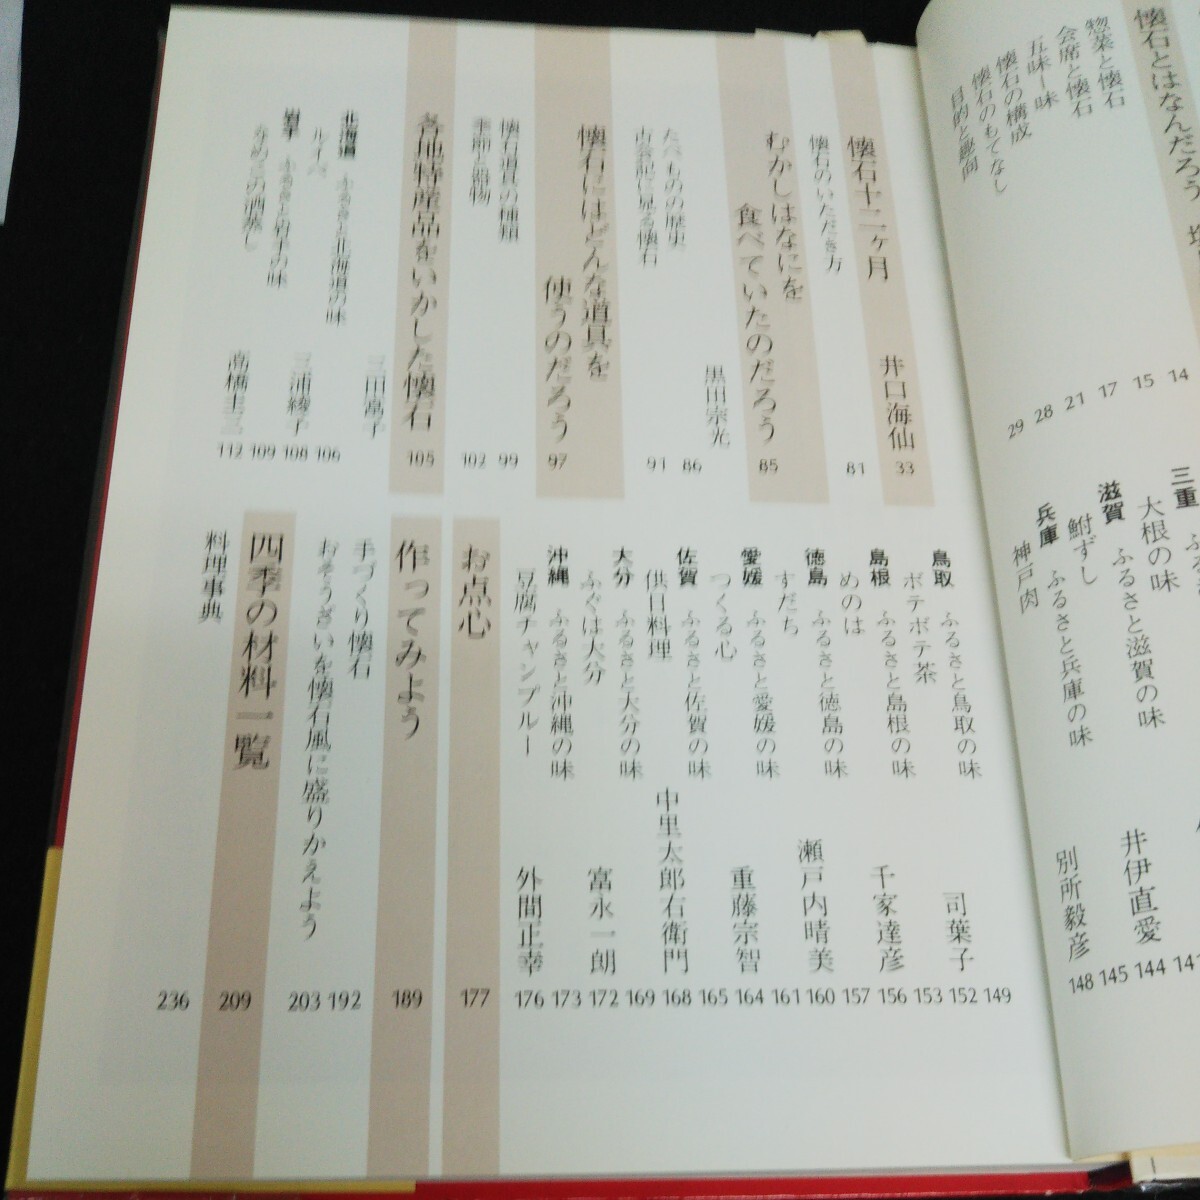 懐石とはなんだろう
惣菜と懐石 14
会席と懐石 15
五味一味 17
懐石の構成 21
懐石のもてなし 28
目的と趣向 29
三重
大根の味 141
滋賀 ふるさと滋賀の味 井伊直愛 144
鮒ずし 145
兵庫 ふるさと兵庫の味 別所毅彦 148
神戸肉
懐石十二ヶ月 井口海仙 33
懐石のいただき方 81
むかしはなにを
食べていたのだろう 85
黒田宗光
たべものの歴史 86
古会記に見る懐石 91
懐石にはどんな道具を
使うのだろう 97
懐石道具の種類 99
季節と器物 102
各地特産品をいかした懐石 105
北海道 ふるさと北海道の味 三田高子 106
ルイベ 108
岩手 ふるさと岩手の味 三浦綾子 109
なめこの酒蒸し 高橋圭三 112
149
鳥取 ふるさと鳥取の味 司葉子 152
ボテボテ茶 153
島根 ふるさと島根の味 千家達彦 156
めのは 157
徳島 ふるさと徳島の味 瀬戸内晴美 160
すだち 161
愛媛 ふるさと愛媛の味 重藤宗智 164
つくる心 165
佐賀 ふるさと佐賀の味 中里太郎右衛門 168
供日料理 169
大分 ふるさと大分の味 富永一朗 172
ふぐは大分 173
沖縄 ふるさと沖縄の味 外間正幸 176
豆腐チャンプルー
お点心 177
作ってみよう 189
手づくり懐石 192
おそうざいを懐石風に盛りかえよう 203
四季の材料一覧 209
料理事典 236